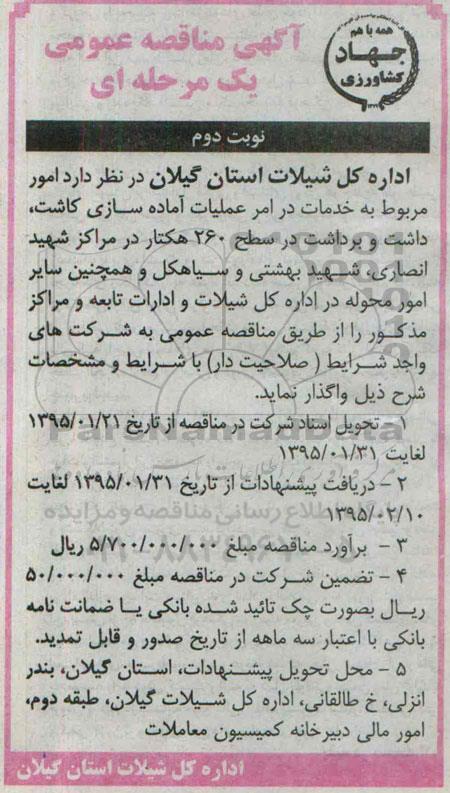 همه با هم
جهاد
کشاورزی
آگهی مناقصه عمومی
یک مرحله ای
نوبت دوم
اداره کل شیلات استان گیلان در نظر دارد امور
مربوط به خدمات در امر عملیات آماده سازی کاشت،
داشت و برداشت در سطح ۲۶۰ هکتار در مراکز شهید
انصاری، شهید بهشتی و سیاهکل و همچنین سایر
امور محوله در اداره کل شیلات و ادارات تابعه و مراکز
مذکور را از طریق مناقصه عمومی به شرکت های
واجد شرایط ( صلاحیت دار) با شرایط و مشخصات
شرح ذیل واگذار نماید.
۱ - تحویل اسناد شرکت در مناقصه از تاریخ ۱۳۹۵/۰۱/۲۱
لغایت ۱۳۹۵/۰۱/۳۱
۲ - دریافت پیشنهادات از تاریخ ۱۳۹۵/۰۱/۳۱ لغایت
۱۳۹۵/۰۲/۱۰
۳ - برآورد مناقصه مبلغ ۵/۷۰۰/۰۰۰/۰۰۰ ریال
۴ - تضمین شرکت در مناقصه مبلغ ۵۰/۰۰۰/۰۰۰
ریال بصورت چک تائید شده بانکی یا ضمانت نامه
بانکی با اعتبار سه ماهه از تاریخ صدور و قابل تمدید.
۵ - محل تحویل پیشنهادات، استان گیلان، بندر
انزلی، خ طالقانی، اداره کل شیلات گیلان، طبقه دوم،
امور مالی دبیرخانه کمیسیون معاملات
اداره کل شیلات استان گیلان
ParsNamadData